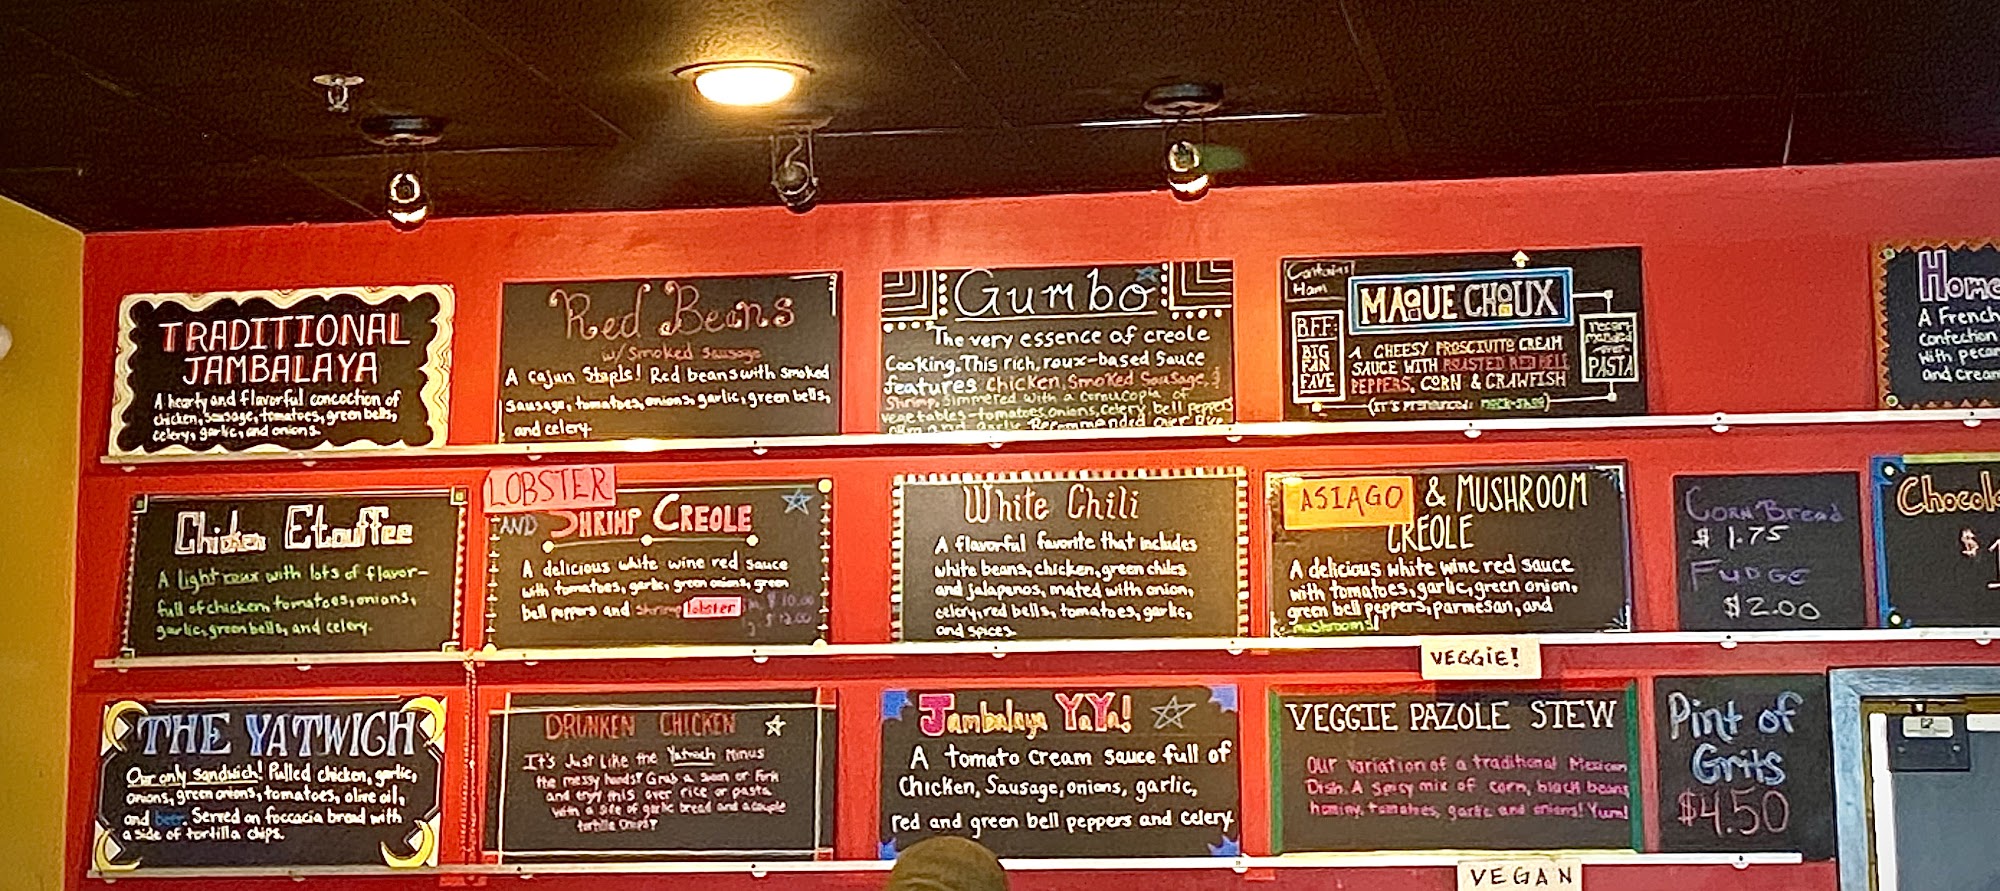 TRADITIONAL
JAMBALAYA
A hearty and flavorful concoction of
chicken, sausage, tomatoes, green bells,
celery, garlic, and onions.
Red Beans
w/ Smoked Sausage
A Cajun Staple! Red beans with smoked
sausage, tomatoes, onions, garlic, green bells,
and celery.
Gumbo
The very essence of creole
Cooking. This rich, roux-based Sauce
features Chicken, Smoked Sausage, &
Shrimp, Simmered with a Cornucopia of
vegetables-tomatoes, onions, celery, bell peppers
and garlic. Recommended over Rice
Contains
Ham
MAQUE CHOUX
B.F.F.
BIG
FAN
FAVE
A CHEESY PROSCIUTTO CREAM
SAUCE WITH ROASTED RED BELL
PEPPERS, CORN & CRAWFISH
(IT'S PRONOUNCED: MOCK-SHOO)
recom-
mended
over
PASTA
Home
A French
Confection
With pecan
and Cream
Chicken Etouffee
A light roux with lots of flavor-
full of chicken, tomatoes, onions,
garlic, green bells, and celery.
LOBSTER
AND SHRIMP CREOLE
A delicious white wine red sauce
with tomatoes, garlic, green onions, green
bell peppers and shrimp lobster
$10.00
lg. $12.00
White Chili
A flavorful favorite that includes
white beans, chicken, green chiles
and jalapenos, mated with onion,
celery, red bells, tomatoes, garlic,
and spices.
ASIAGO & MUSHROOM
CREOLE
A delicious white wine red sauce
with tomatoes, garlic, green onion,
green bell peppers, parmesan, and
mushrooms!
VEGGIE!
CORN Bread
$1.75
FUDGE
$2.00
Chocol
$1
THE YATWICH
Our only sandwich! Pulled chicken, garlic,
onions, green onions, tomatoes, olive oil,
and beer. Served on foccacia bread with
a side of tortilla chips.
DRUNKEN CHICKEN
It's Just Like the Yatwich Minus
the messy hands! Grab a spoon or Fork
and enjoy this over rice or pasta
with a side of garlic bread and a couple
tortilla chips!
Jambalaya YaYa!
A tomato cream sauce full of
Chicken, Sausage, onions, garlic,
red and green bell peppers and celery.
VEGGIE PAZOLE STEW
Our variation of a traditional Mexican
Dish. A spicy mix of corn, black beans
hominy, tomatoes, garlic and onions! Yum!
VEGAN
Pint of
Grits
$4.50